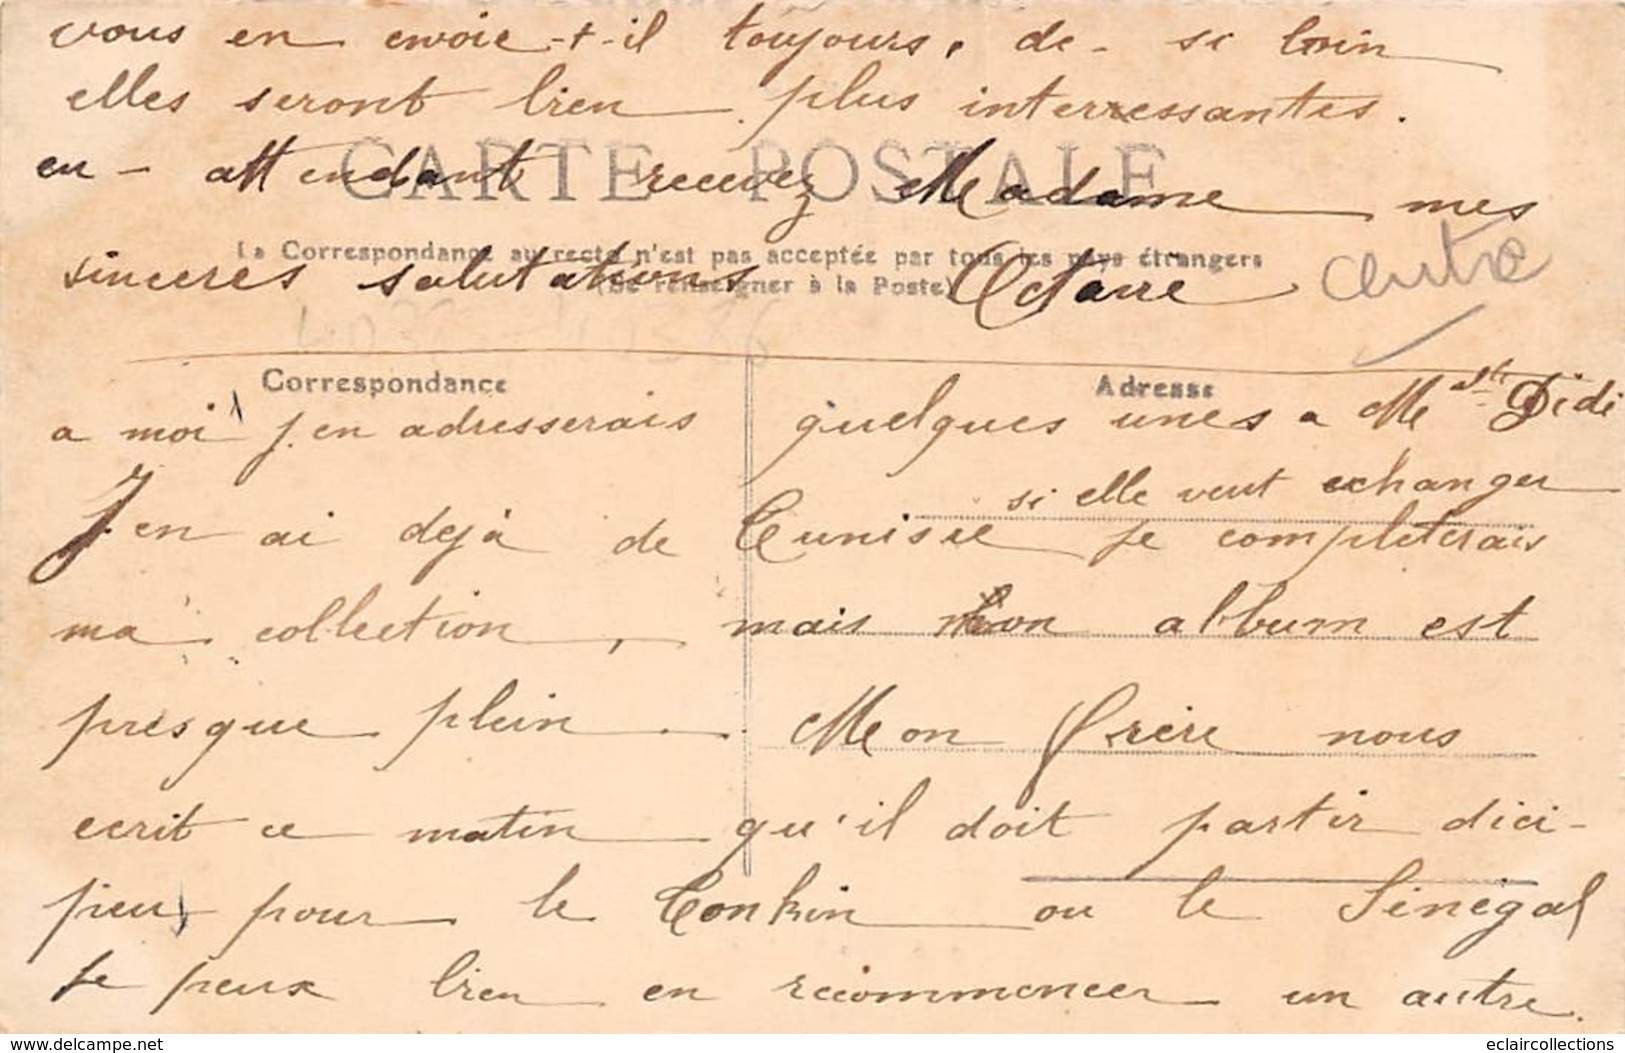 vous en envoie-t-il toujours, de si loin
elles seront bien plus interressantes.
CARTE POSTALE
en attendant recevez Madame mes
La Correspondance au recto n'est pas acceptée par tous les pays étrangers
(Se renseigner à la Poste)
sinceres salutations Octavie
Centre
Correspondance
Adresse
a moi j'en adresserais quelques unes a Melle Didi
si elle veut echanger
J'en ai dejà de Tunisie je completerais
ma collection, mais mon album est
presque plein. Mon frère nous
ecrit ce matin qu'il doit partir d'ici
peu pour le Tonkin ou le Sénégal
je peux bien en recommencer un autre.
www.delcampe.net
eclaircollections